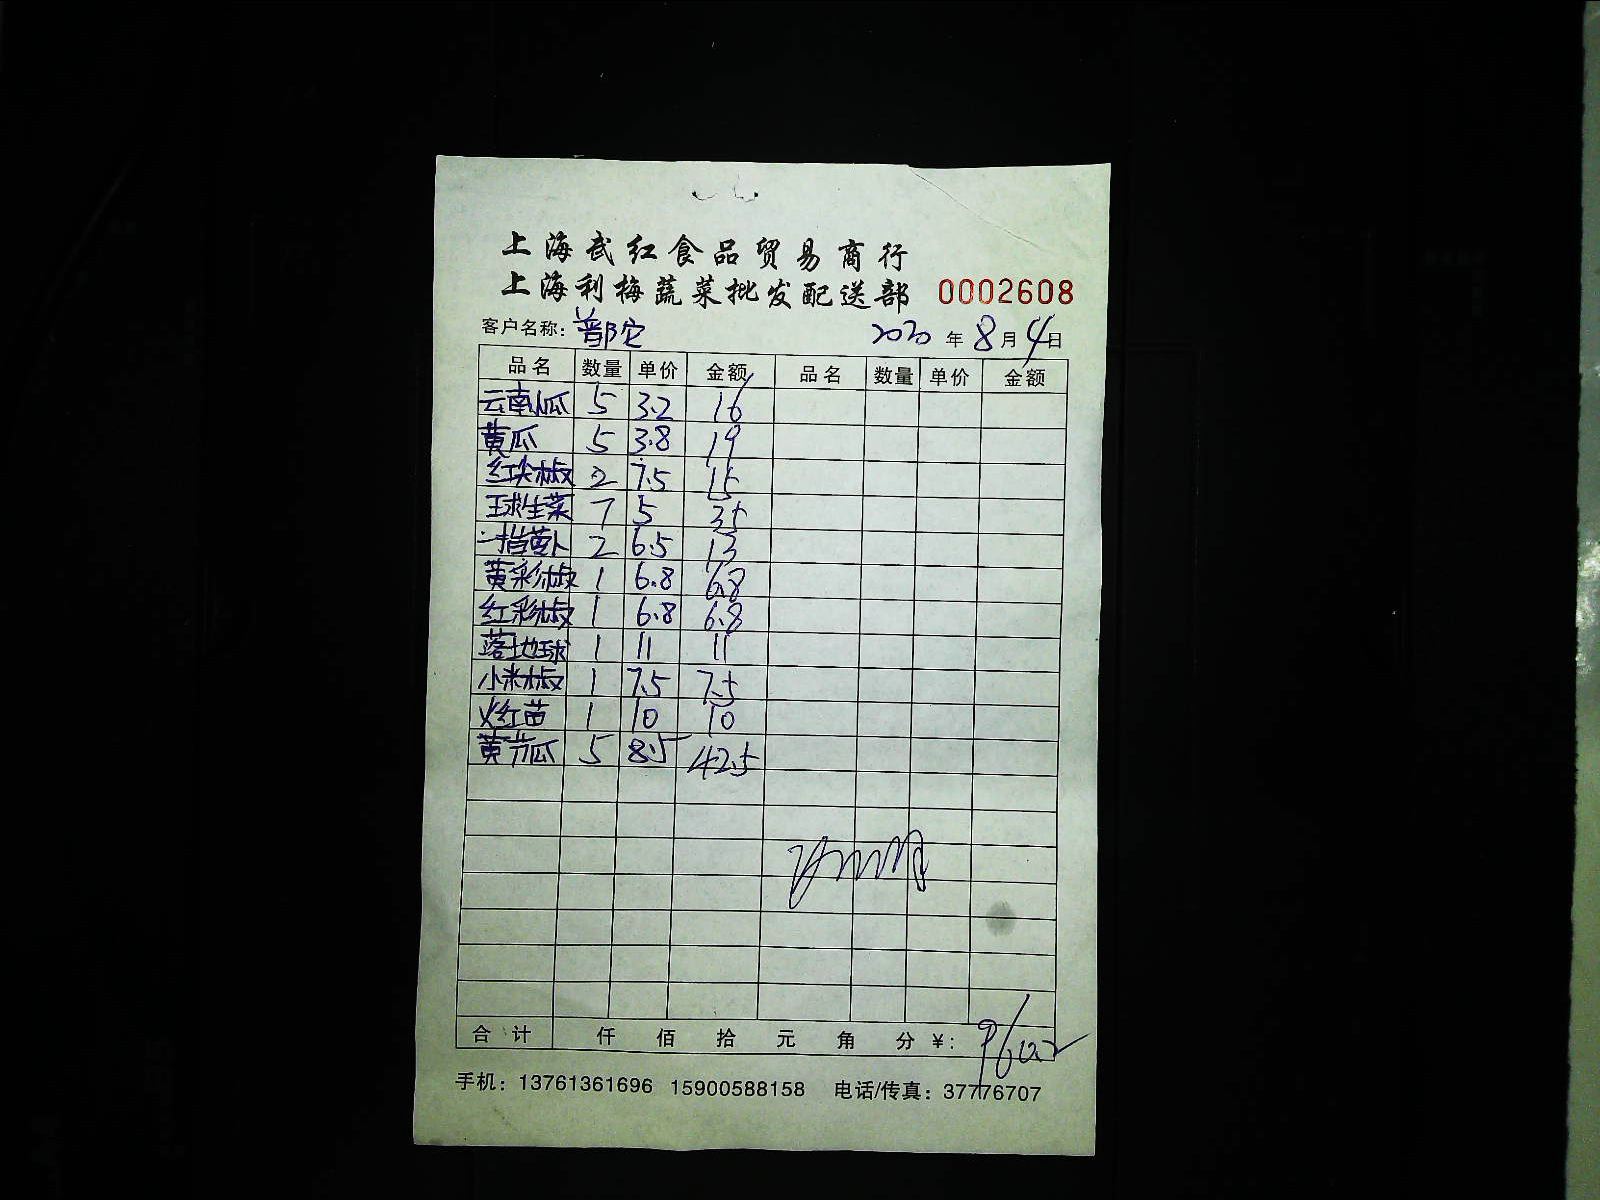 上海武红食品贸易商行
上海利梅蔬菜批发配送部 0002608
客户名称：普陀 2020 年 8 月 4 日
品名 数量 单价 金额 品名 数量 单价 金额
云南小瓜 5 3.2 16
黄瓜 5 3.8 19
红尖椒 2 7.5 15
球生菜 7 5 35
一指萝卜 2 6.5 13
黄彩椒 1 6.8 6.8
红彩椒 1 6.8 6.8
落地球 1 11 11
小米椒 1 7.5 7.5
火红苗 1 10 10
黄节瓜 5 8.5 42.5
合计 仟 佰 拾 元 角 分 ¥：
手机：13761361696 15900588158 电话/传真：37776707